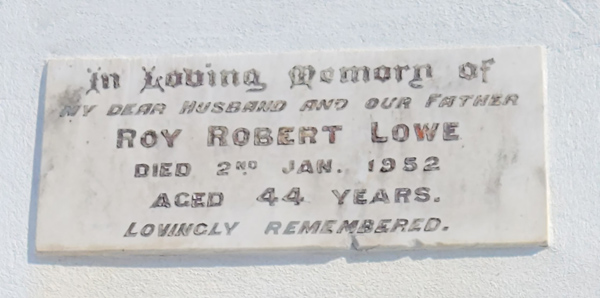 In Loving Memory of
MY DEAR HUSBAND AND OUR FATHER
ROY ROBERT LOWE
DIED 2ND JAN. 1952
AGED 44 YEARS.
LOVINGLY REMEMBERED.